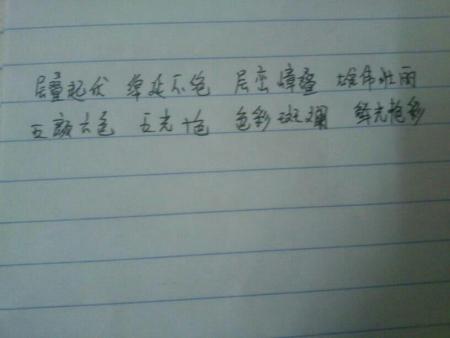 层叠起伏 绵延不绝 层峦嶂叠 雄伟壮丽
五颜六色 五光十色 色彩斑斓 鲜光艳彩